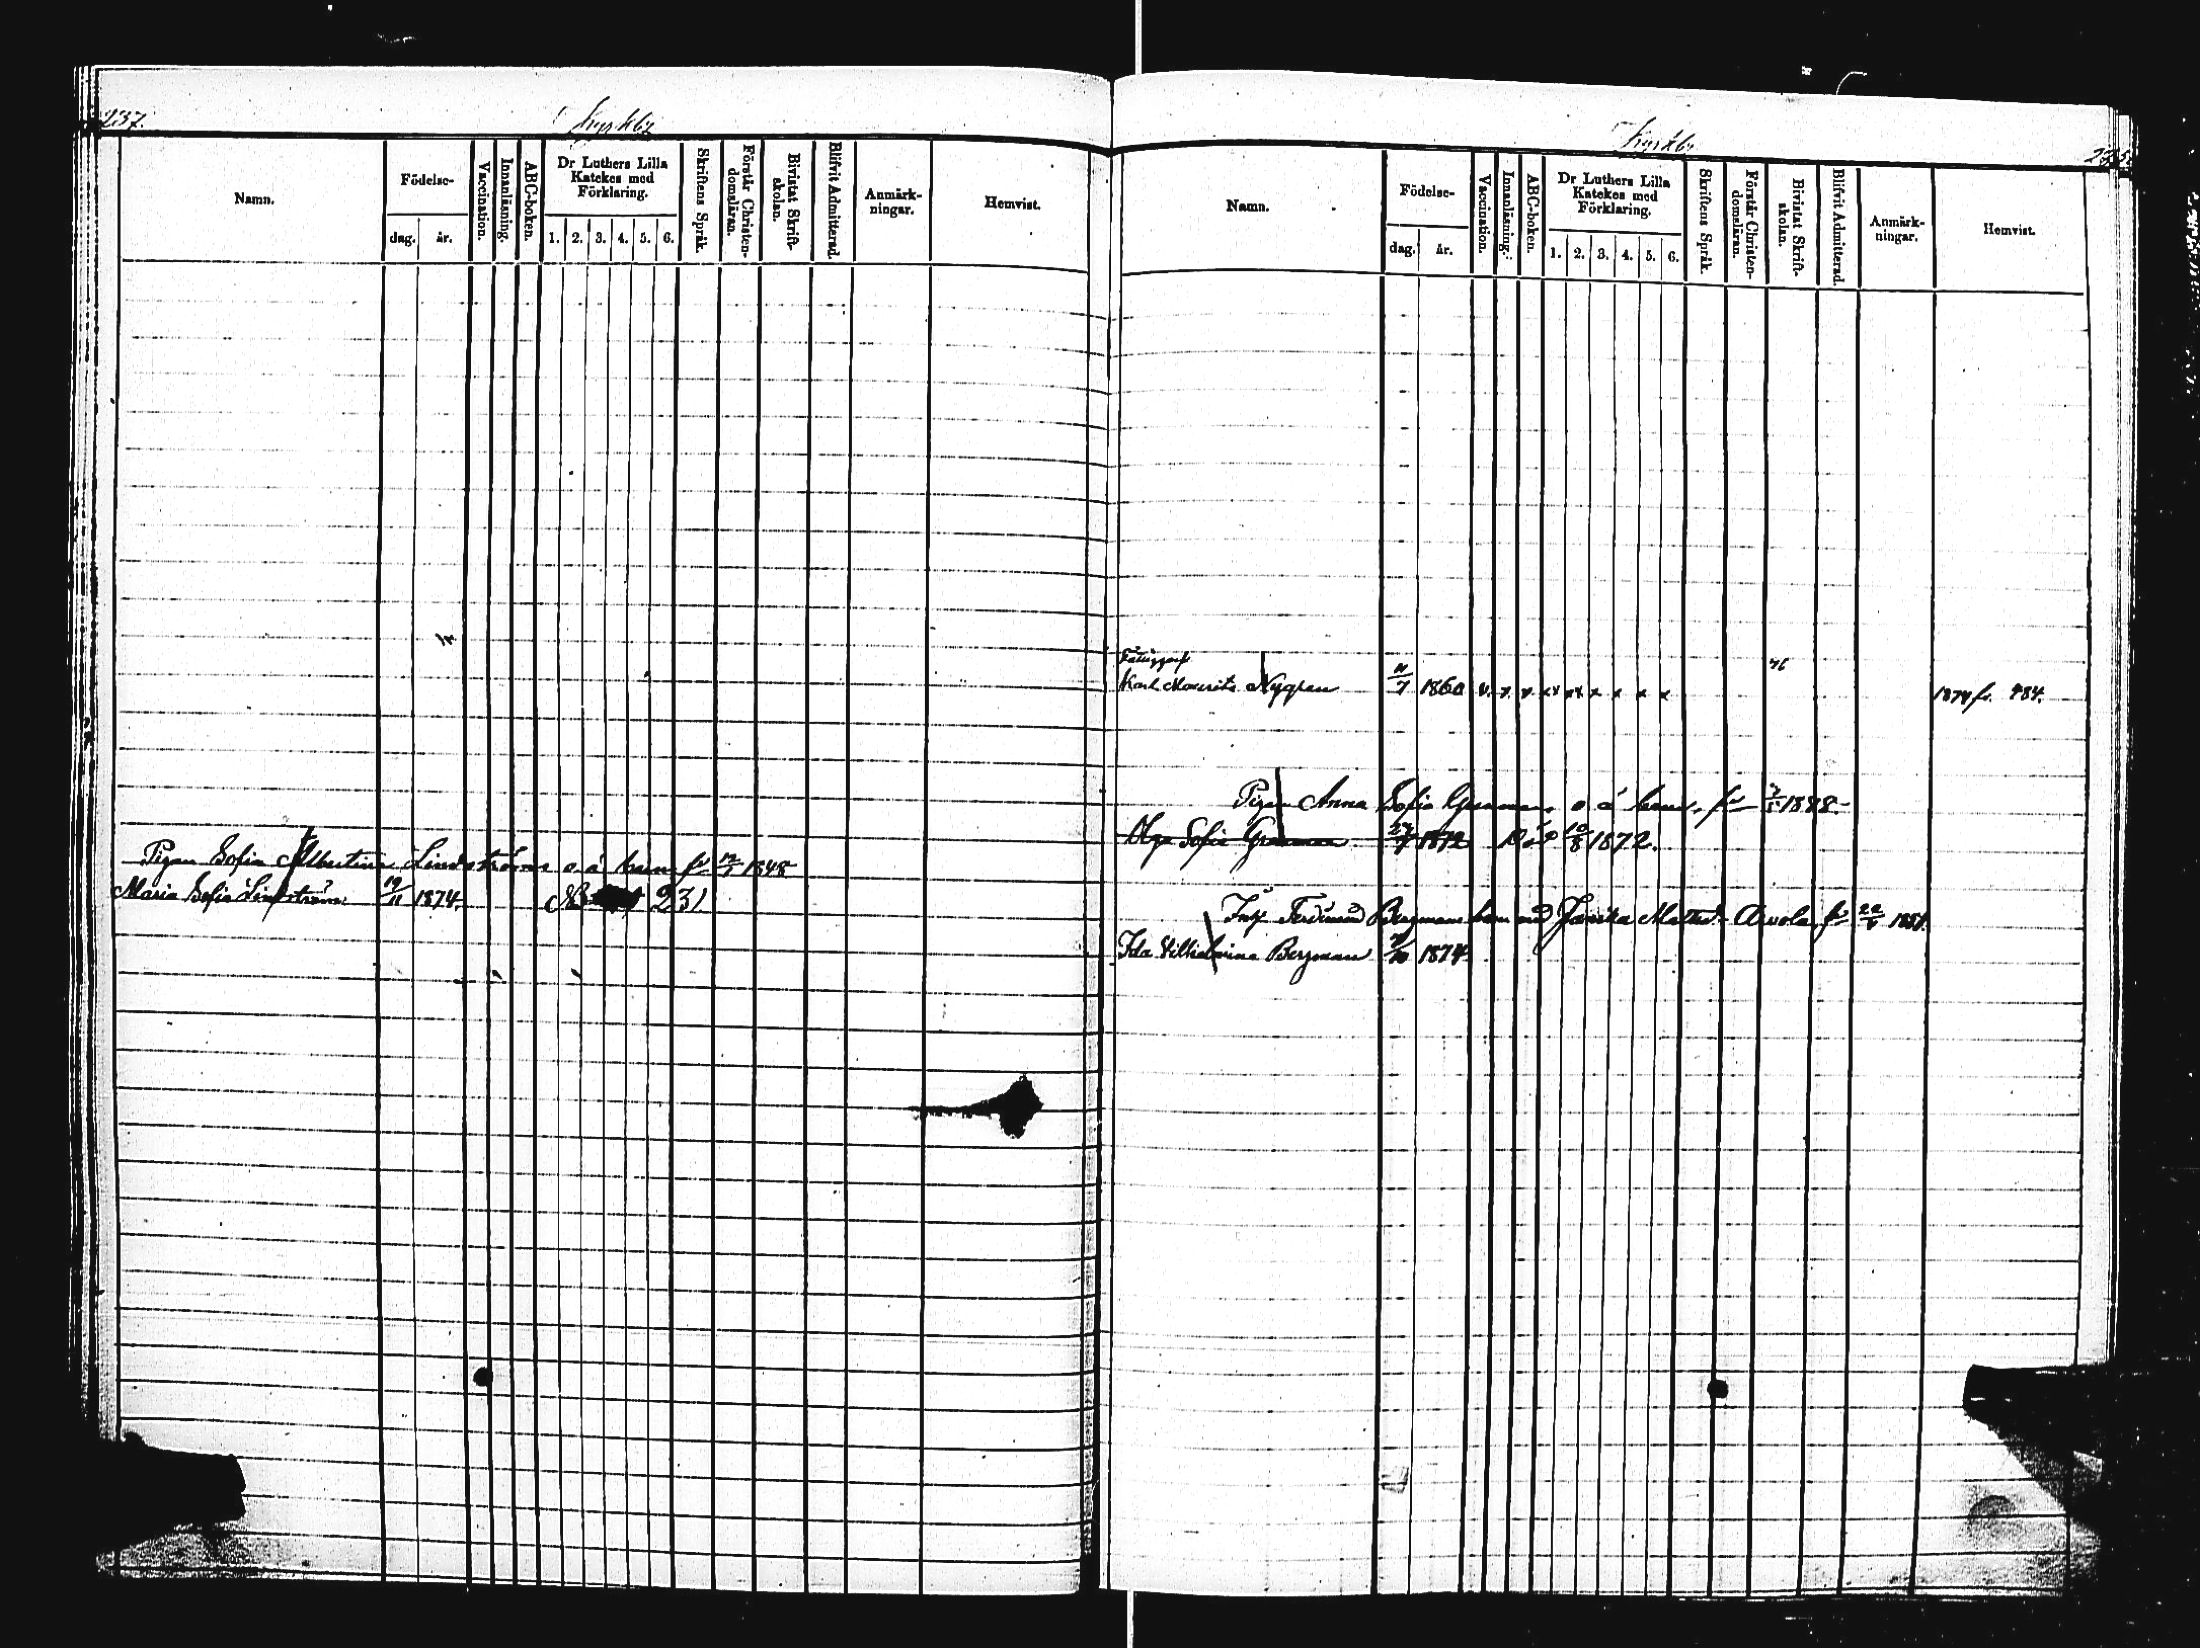 237.
Kyrkby
Namn.
Födelse-
dag. år.
Vaccination.
Innanläsning.
ABC-boken.
Dr Luthers Lilla
Katekes med
Förklaring.
1. 2. 3. 4. 5. 6.
Skriftens Språk.
Förstår Christen-
domsläran.
Bivistat Skrift-
skolan.
Blifvit Admitterad.
Anmärk-
ningar.
Hemvist.
Pigan Sofia Albertina Lindströms o ä barn f 1848
Maria Sofia Lindström 19/11 1874. 231
Kyrkby
Namn.
Födelse-
dag. år.
Vaccination.
Innanläsning.
ABC-boken.
Dr Luthers Lilla
Katekes med
Förklaring.
1. 2. 3. 4. 5. 6.
Skriftens Språk.
Förstår Christen-
domsläran.
Bivistat Skrift-
skolan.
Blifvit Admitterad.
Anmärk-
ningar.
Hemvist.
Karl Maurits Nygren 1860 v. x x x x x x x x 76
Pigan Anna Sofia o ä barn,
Olga Sofia 27/7 1872 Död 10/8 1872.
Ferdinand Bergmans barn med
Ida Vilhelmina Bergman 1874